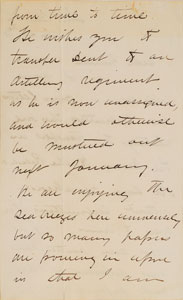 from time to time
He wishes you to
transfer sent to an
Artillery regiment
as he is now unassigned
and would otherwise
be mustered out
next January.
We are enjoying the
sea breezes here immensely
but so many papers
are pouring in upon
in that I am